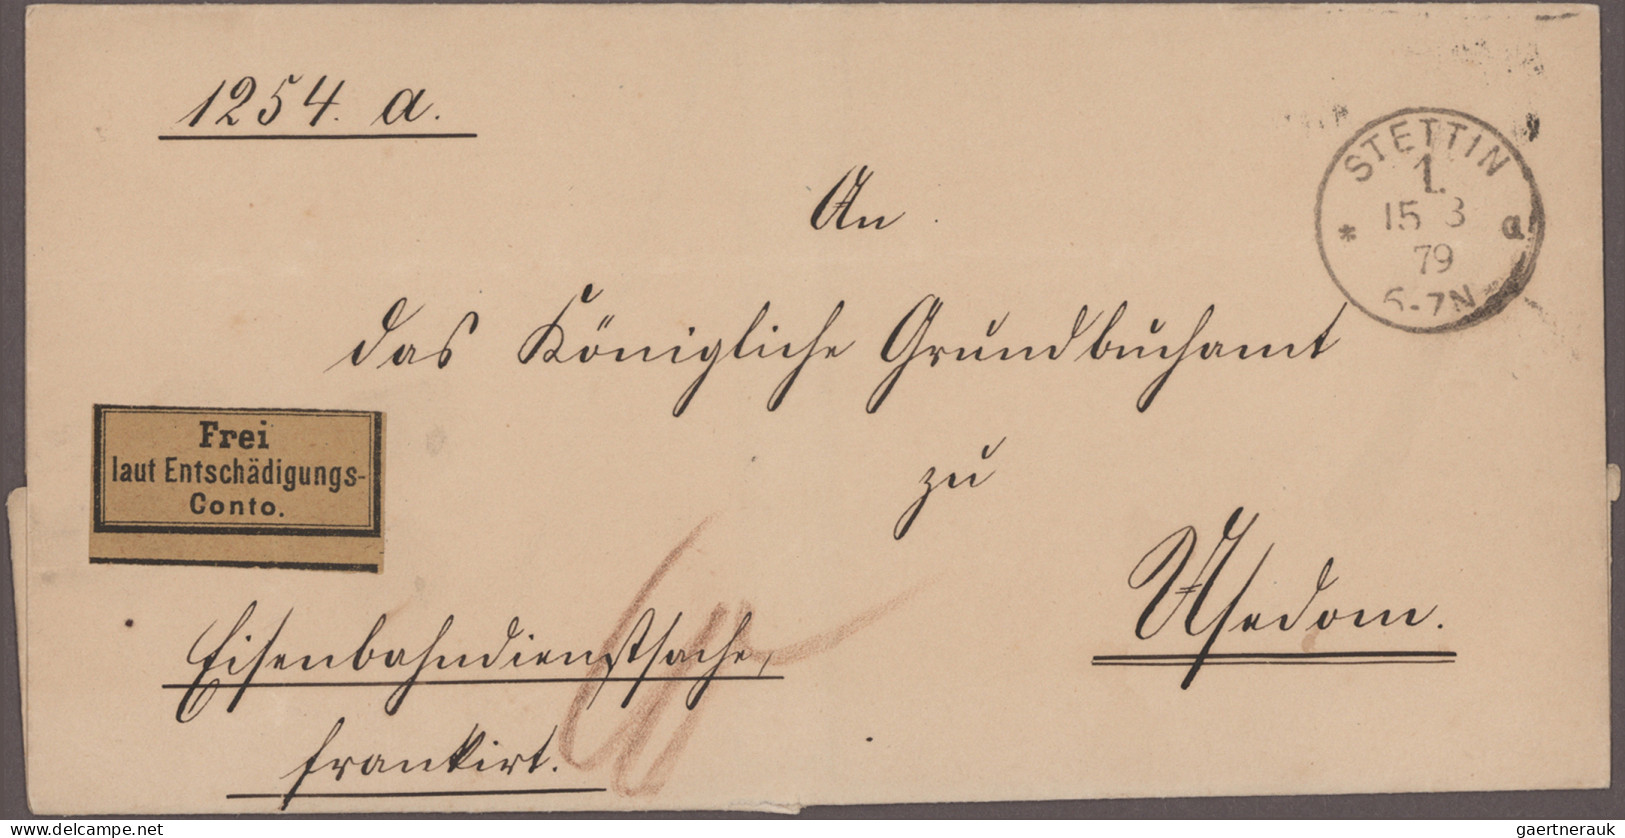 1254. a.
STETTIN
1.
15 3
* a
79
6-7N
An
das Königliche Grundbuchamt
Frei
laut Entschädigungs-
Conto.
zu
Usedom.
Eisenbahndienstsache,
frankirt.
delcampe.net
gaertnerauk